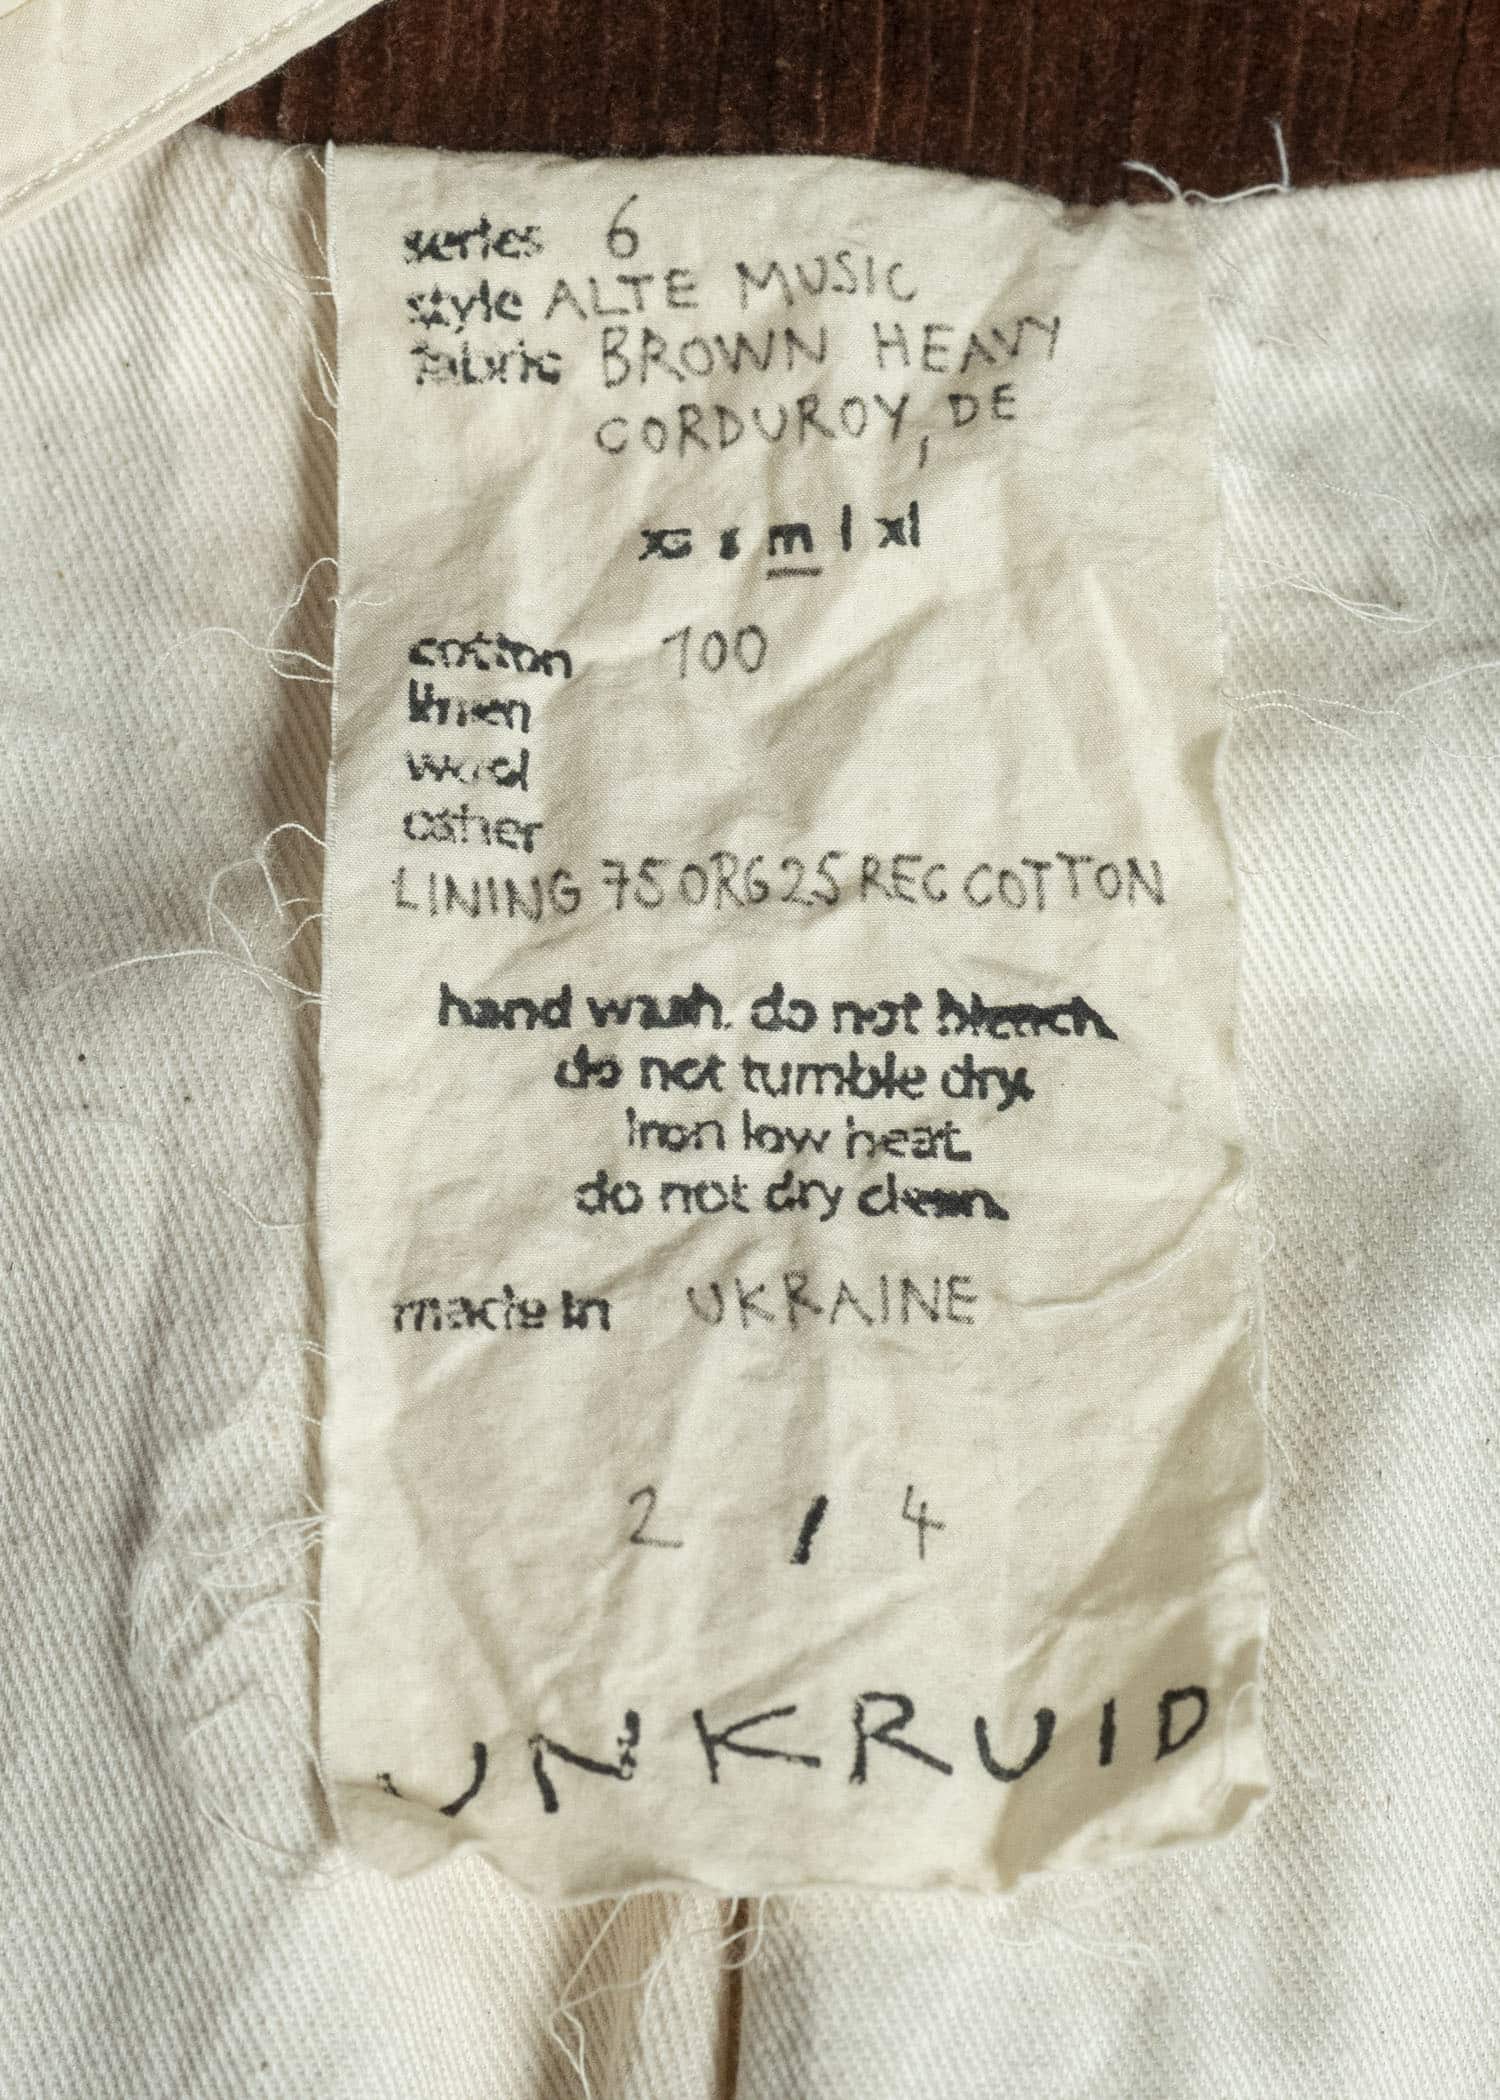 series 6
style ALTE MUSIC
fabric BROWN HEAVY
CORDUROY, DE
xs s m l xl
cotton 100
linen
wool
other
LINING 75 ORG 25 REC COTTON
hand wash. do not bleach.
do not tumble dry.
iron low heat.
do not dry clean.
made in UKRAINE
2 / 4
UNKRUID